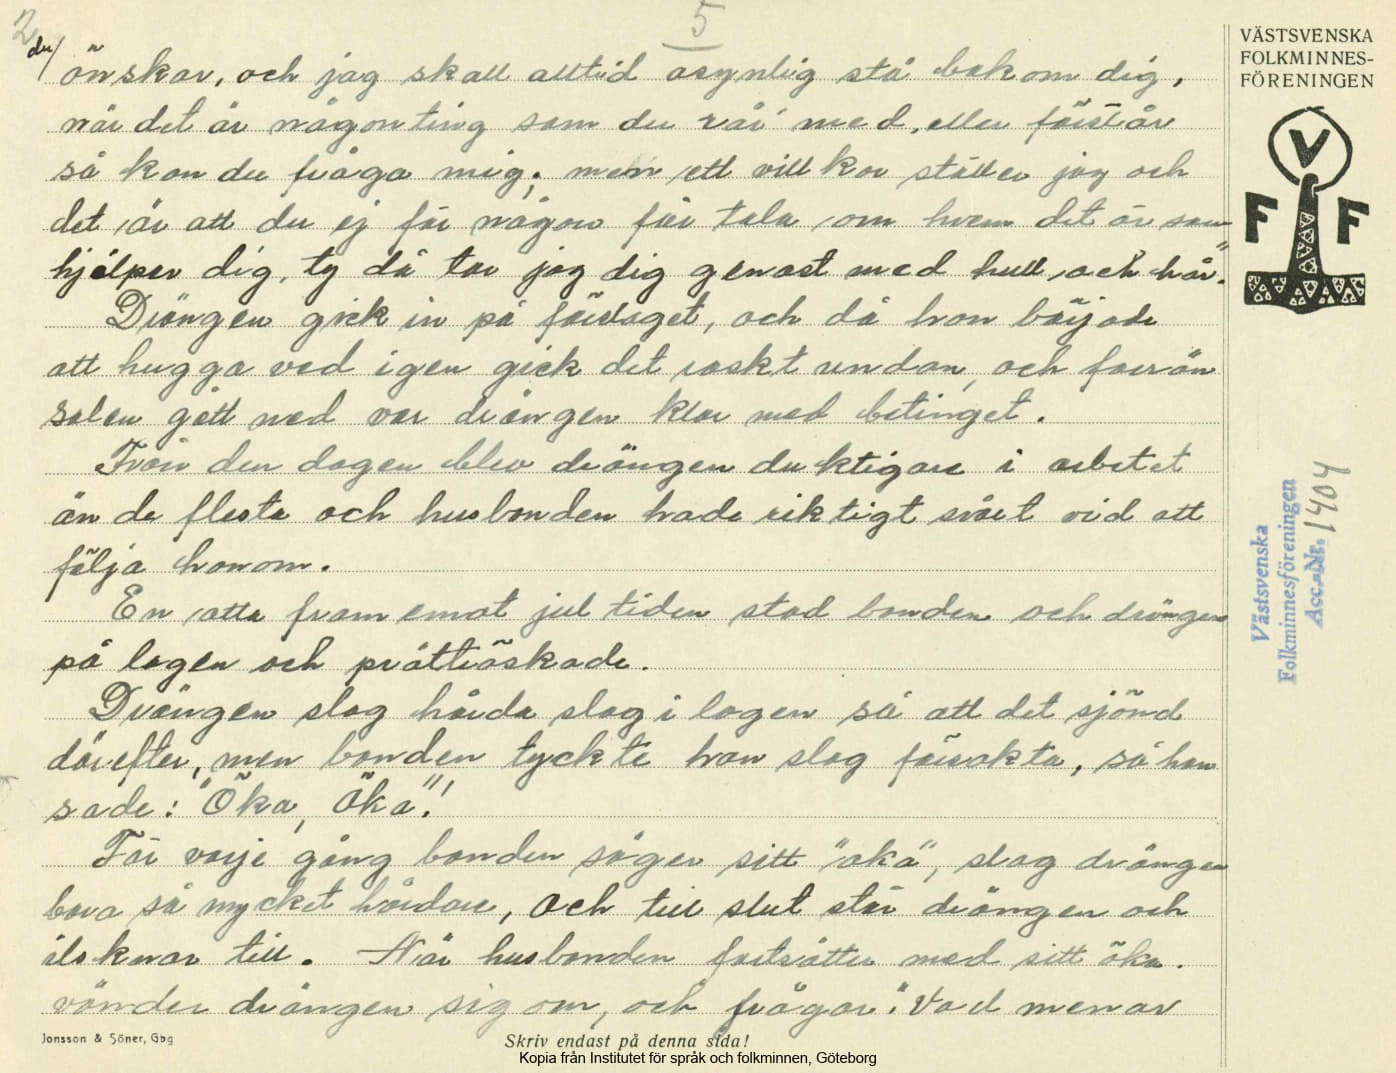 2
5
du/ önskar, och jag skall alltid osynlig stå bakom dig,
när det är någonting som du rår med, eller förstår
så kan du fråga mig; men ett villkor ställer jag och
det är att du ej får någon får tala om hvem det är som
hjälper dig, ty då tar jag dig genast med hull och hår".
Drängen gick in på förslaget, och då hron började
att hugga ved igen gick det raskt undan, och förrän
solen gått ned var drängen klar med betinget.
Från den dagen blev drängen duktigare i arbetet
än de flesta och husbonden hade riktigt svårt vid att
följa honom.
En otta framemot jultiden stod bonden och drängen
på logen och prättröskade.
Drängen slog hårda slag i logen så att det sjönd
därefter, men bonden tyckte han slog försakta, så han
sade: "Öka, Öka"!
För varje gång bonden säger sitt "öka", slog drängen
bara så mycket hårdare, och till slut står drängen och
ilsknar till. När husbonden fortsätter med sitt öka.
vänder drängen sig om, och frågar: "Vad menar
VÄSTSVENSKA
FOLKMINNES-
FÖRENINGEN
V
F F
Västsvenska
Folkminnesföreningen
Acc. Nr. 1404
Jonsson & Söner, Gbg
Skriv endast på denna sida!
Kopia från Institutet för språk och folkminnen, Göteborg